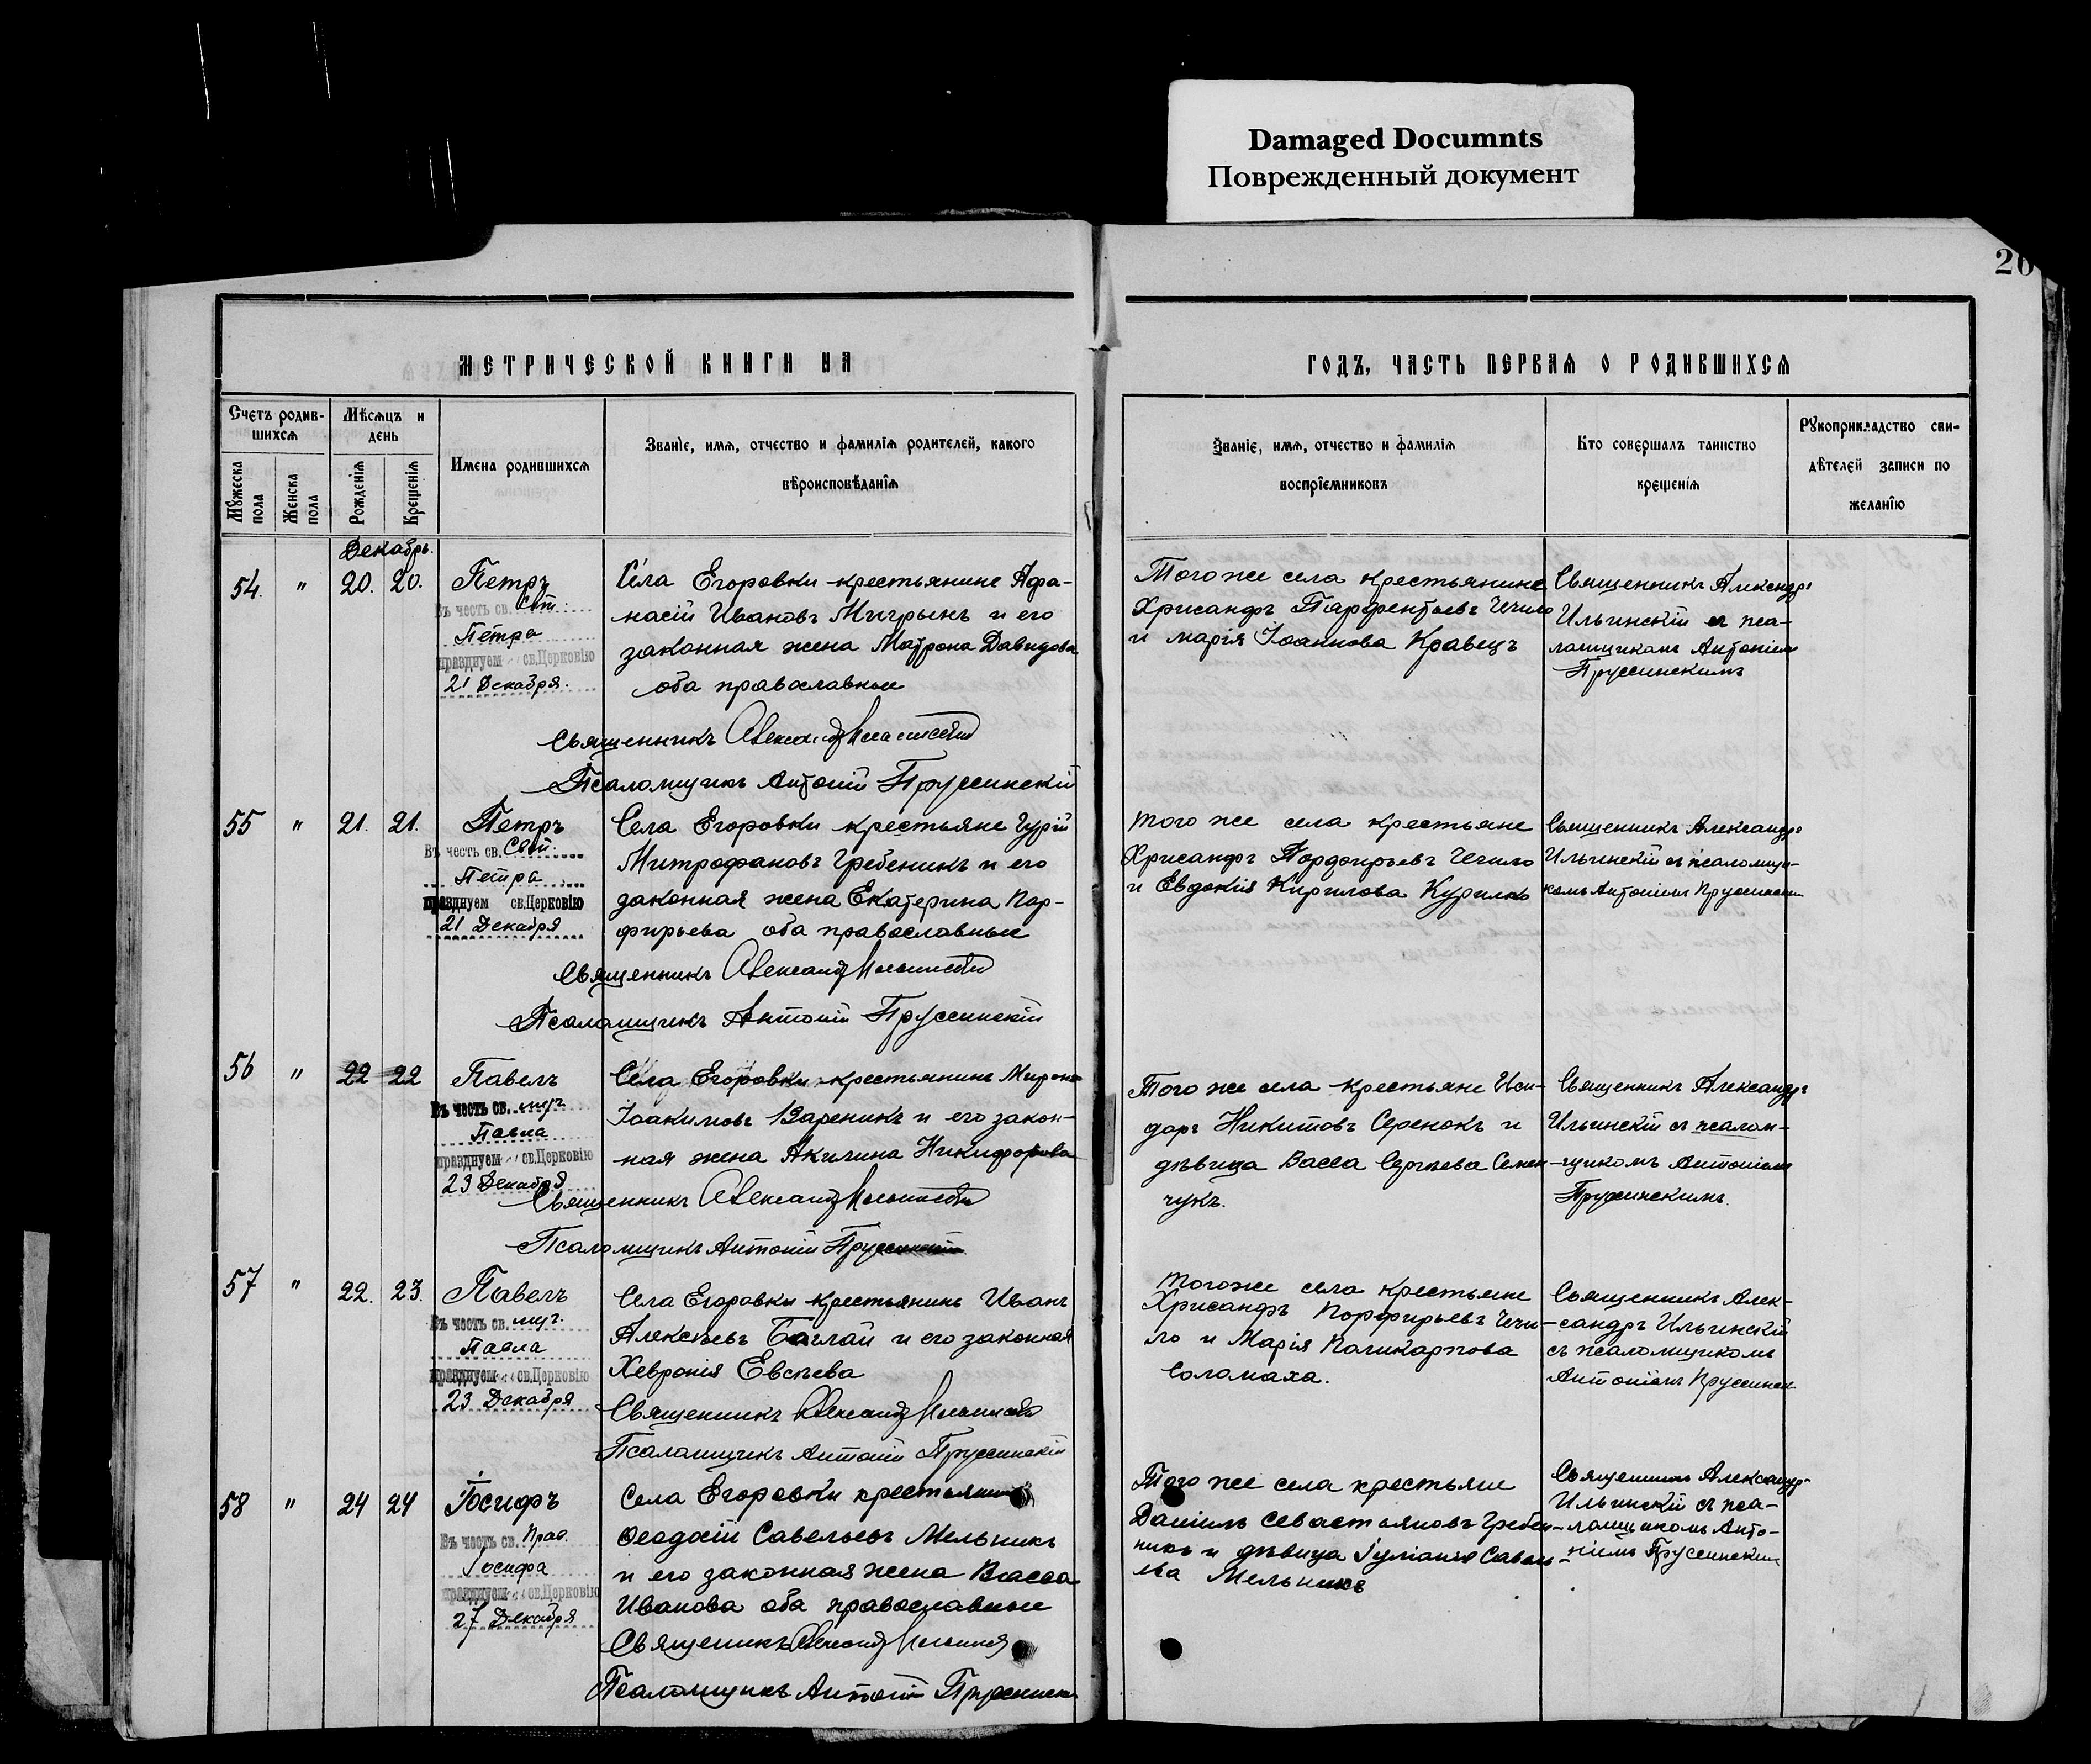 Damaged Documnts
Поврежденный документ
20
МЕТРИЧЕСКОЙ КНИГИ НА
ГОДЪ, ЧАСТЬ ПЕРВАЯ О РОДИВШИХСЯ
Счетъ родив-
шихся
Мѣсяцъ и
день
Мужеска
пола
Женска
пола
Рожденія
Крещенія
Имена родившихся
Званіе, имя, отчество и фамилія родителей, какого
вѣроисповѣданія
Званіе, имя, отчество и фамилія
воспріемниковъ
Кто совершалъ таинство
крещенія
Рукоприкладство сви-
дѣтелей записи по
желанію
Декабрь.
54. " 20. 20.
Петръ
Въ честь св. Свт.
Петра
празднуем св.Церковію
21 Декабря.
Села Егоровки крестьянинъ Афа-
насій Ивановъ Мигрынъ и его
законная жена Матрона Давидова
оба православные
Священникъ Александръ Ильинскій
Псаломщикъ Антоній Пруссинскій
Того же села крестьянине
Хрисандръ Парфентьевъ Чечило
и марія Іоаннова Кравецъ
Священникъ Александръ
Ильинскій съ пса-
ломщикомъ Антоніемъ
Пруссинскимъ
55 " 21. 21.
Петръ
Въ честь св. Свт.
Петра
празднуем св.Церковію
21 Декабря
Села Егоровки крестьяне Гурій
Митрофановъ Гребеникъ и его
законная жена Екатерина Пор-
фирьева оба православные
Священникъ Александръ Ильинскій
Псаломщикъ Антоній Пруссинскій
того же села крестьяне
Хрисандръ Порфирьевъ Чечило
и Евдокія Кирилова Курилко
Священникъ Александръ
Ильинскій съ псаломщи-
комъ Антоніемъ Пруссинским
56 " 22 22
Павелъ
Въ честь св. муч
Павла
празднуем св.Церковію
23 Декабря
Села Егоровки крестьянинъ Миронъ
Іоакимовъ Вареникъ и его закон-
ная жена Акилина Никифорова
Священникъ Александръ Ильинскій
Псаломщикъ Антоній Пруссинскій
Того же села крестьяне Иси-
доръ Никитовъ Серенокъ и
дѣвица Васса Сергѣева Семен-
чукъ.
Священникъ Александръ
Ильинскій съ псалом-
щикомъ Антоніемъ
Пруссинскимъ.
57 " 22. 23.
Павелъ
Въ честь св. муч.
Павла
празднуем св.Церковію
23 Декабря
Села Егоровки крестьянинъ Иванъ
Алексѣевъ Баглай и его законная
Хевронія Евсѣева
Священникъ Александръ Ильинскій
Псаломщикъ Антоній Пруссинскій
того же села крестьяне
Хрисандръ Порфирьевъ Чечи-
ло и Марія Поликарпова
Соломаха.
Священникъ Алек-
сандръ Ильинскій
съ псаломщикомъ
Антоніемъ Пруссинск
58 " 24 24
Іосифъ
Въ честь св. Прав.
Іосифа
празднуем св.Церковію
27 Декабря
Села Егоровки крестьянинъ
Ѳеодосій Савельевъ Мельникъ
и его законная жена Васса
Иванова оба православные
Священикъ Александръ Ильинскій
Псаломщикъ Антоній Пруссинскій
Того же села крестьяне
Даніилъ Севастьяновъ Гребен-
никъ и дѣвица Іуліанія Савель-
ева Мельникъ
Священникъ Александръ
Ильинскій съ пса-
ломщикомъ Анто-
ніемъ Пруссинским